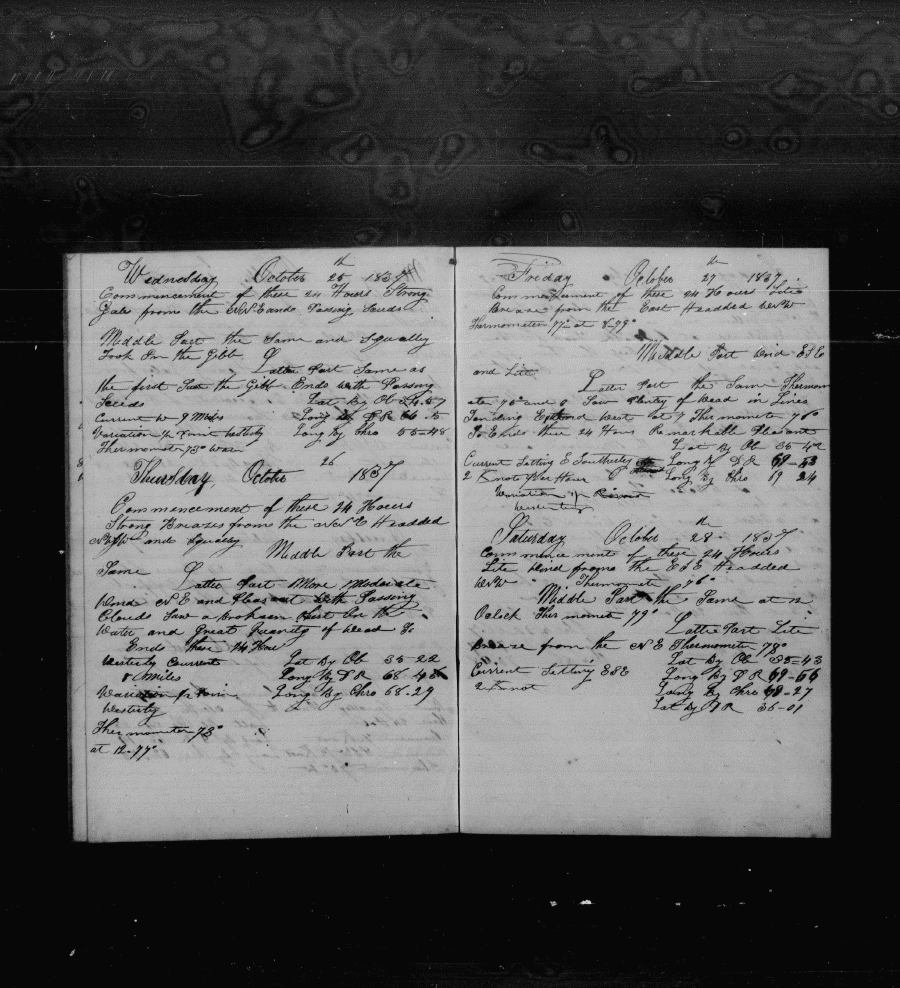 Wednesday October 25th 1837
Commencement of these 24 Hours Strong
Gale from the NNE and Passing Scuds
Middle Part the Same and Squally
Took In the Gibb
Latter Part Same as
the first Sett the Gibb Ends With Passing
Lat By Ob
Current W 9 Miles Long By D R
Variation 1/2 Point Westerly Long By Chro 55-48
Thermometer 73°
Thursday October 26 1837
Commencement of these 24 Hours
Strong Breazes from the NNE Headded
and Squally
Middle Part the
Same
Latter Part More Moderate
Wind N E and Pleasant With Passing
Clouds Saw a Brokean Chest On the
Water and Great Quanity of Wead So
Ends these 24 Hours
Westerly Current Lat By Ob 35-22
8 Miles Long By D R 68-48
Long By Chro 68-29
Westerly
Thermometer 73°
at 12-77°
Friday October 27th 1837
Commencement of these 24 Hours Lite
Breaze from the East Headded WNW
Thermometer 77° at 79°
Middle Part Wind ESE
and Lite
Latter Part the Same Thermom
Saw Plenty of Wead in Lines
Tending East and West Thermometer 76°
So Ends these 24 Hours Remarkable Pleasant
Lat By Ob 35-42
Current Setting E Southerley Long By D R
2 Knots Per Hour Long By Chro 69 24
Variation
Westerly
Saturday October 28th 1837
Commencement of these 24 Hours
Lite Wind from the ESE Headded
WNW Thermometer 76°
Middle Part the Same at 12
Oclock Thermometer 79°
Latter Part Lite
Breaze from the NE Thermometer 78°
Lat By Ob 35-43
Current Setting ESE Long By D R
2 Knot Long By Chro 68-27
Lat By D R 36-01